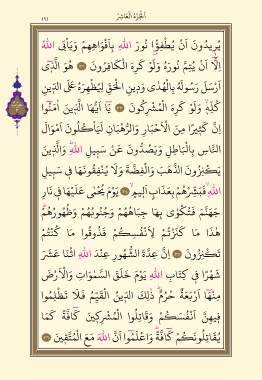 اَلْجُزْءُ الْعَاشِرُ
١٩١
يُر۪يدُونَ اَنْ يُطْفِؤُا نُورَ اللّٰهِ بِاَفْوَاهِهِمْ وَيَأْبَى اللّٰهُ
اِلَّٓا اَنْ يُتِمَّ نُورَهُ وَلَوْ كَرِهَ الْكَافِرُونَ ﴿٣٢﴾ هُوَ الَّذ۪ٓي
اَرْسَلَ رَسُولَهُ بِالْهُدٰى وَد۪ينِ الْحَقِّ لِيُظْهِرَهُ عَلَى الدّ۪ينِ
كُلِّه۪ۙ وَلَوْ كَرِهَ الْمُشْرِكُونَ ﴿٣٣﴾ يَٓا اَيُّهَا الَّذ۪ينَ اٰمَنُٓوا
اِنَّ كَث۪يرًا مِنَ الْاَحْبَارِ وَالرُّهْبَانِ لَيَأْكُلُونَ اَمْوَالَ
النَّاسِ بِالْبَاطِلِ وَيَصُدُّونَ عَنْ سَب۪يلِ اللّٰهِۜ وَالَّذ۪ينَ
يَكْنِزُونَ الذَّهَبَ وَالْفِضَّةَ وَلَا يُنْفِقُونَهَا ف۪ي سَب۪يلِ
اللّٰهِۙ فَبَشِّرْهُمْ بِعَذَابٍ اَل۪يمٍۙ ﴿٣٤﴾ يَوْمَ يُحْمٰى عَلَيْهَا ف۪ي نَارِ
جَهَنَّمَ فَتُكْوٰى بِهَا جِبَاهُهُمْ وَجُنُوبُهُمْ وَظُهُورُهُمْۜ
هٰذَا مَا كَنَزْتُمْ لِاَنْفُسِكُمْ فَذُوقُوا مَا كُنْتُمْ
تَكْنِزُونَ ﴿٣٥﴾ اِنَّ عِدَّةَ الشُّهُورِ عِنْدَ اللّٰهِ اثْنَا عَشَرَ
شَهْرًا ف۪ي كِتَابِ اللّٰهِ يَوْمَ خَلَقَ السَّمٰوَاتِ وَالْاَرْضَ
مِنْهَٓا اَرْبَعَةٌ حُرُمٌۜ ذٰلِكَ الدّ۪ينُ الْقَيِّمُ فَلَا تَظْلِمُوا
ف۪يهِنَّ اَنْفُسَكُمْ وَقَاتِلُوا الْمُشْرِك۪ينَ كَٓافَّةً كَمَا
يُقَاتِلُونَكُمْ كَٓافَّةًۜ وَاعْلَمُٓوا اَنَّ اللّٰهَ مَعَ الْمُتَّق۪ينَ ﴿٣٦﴾